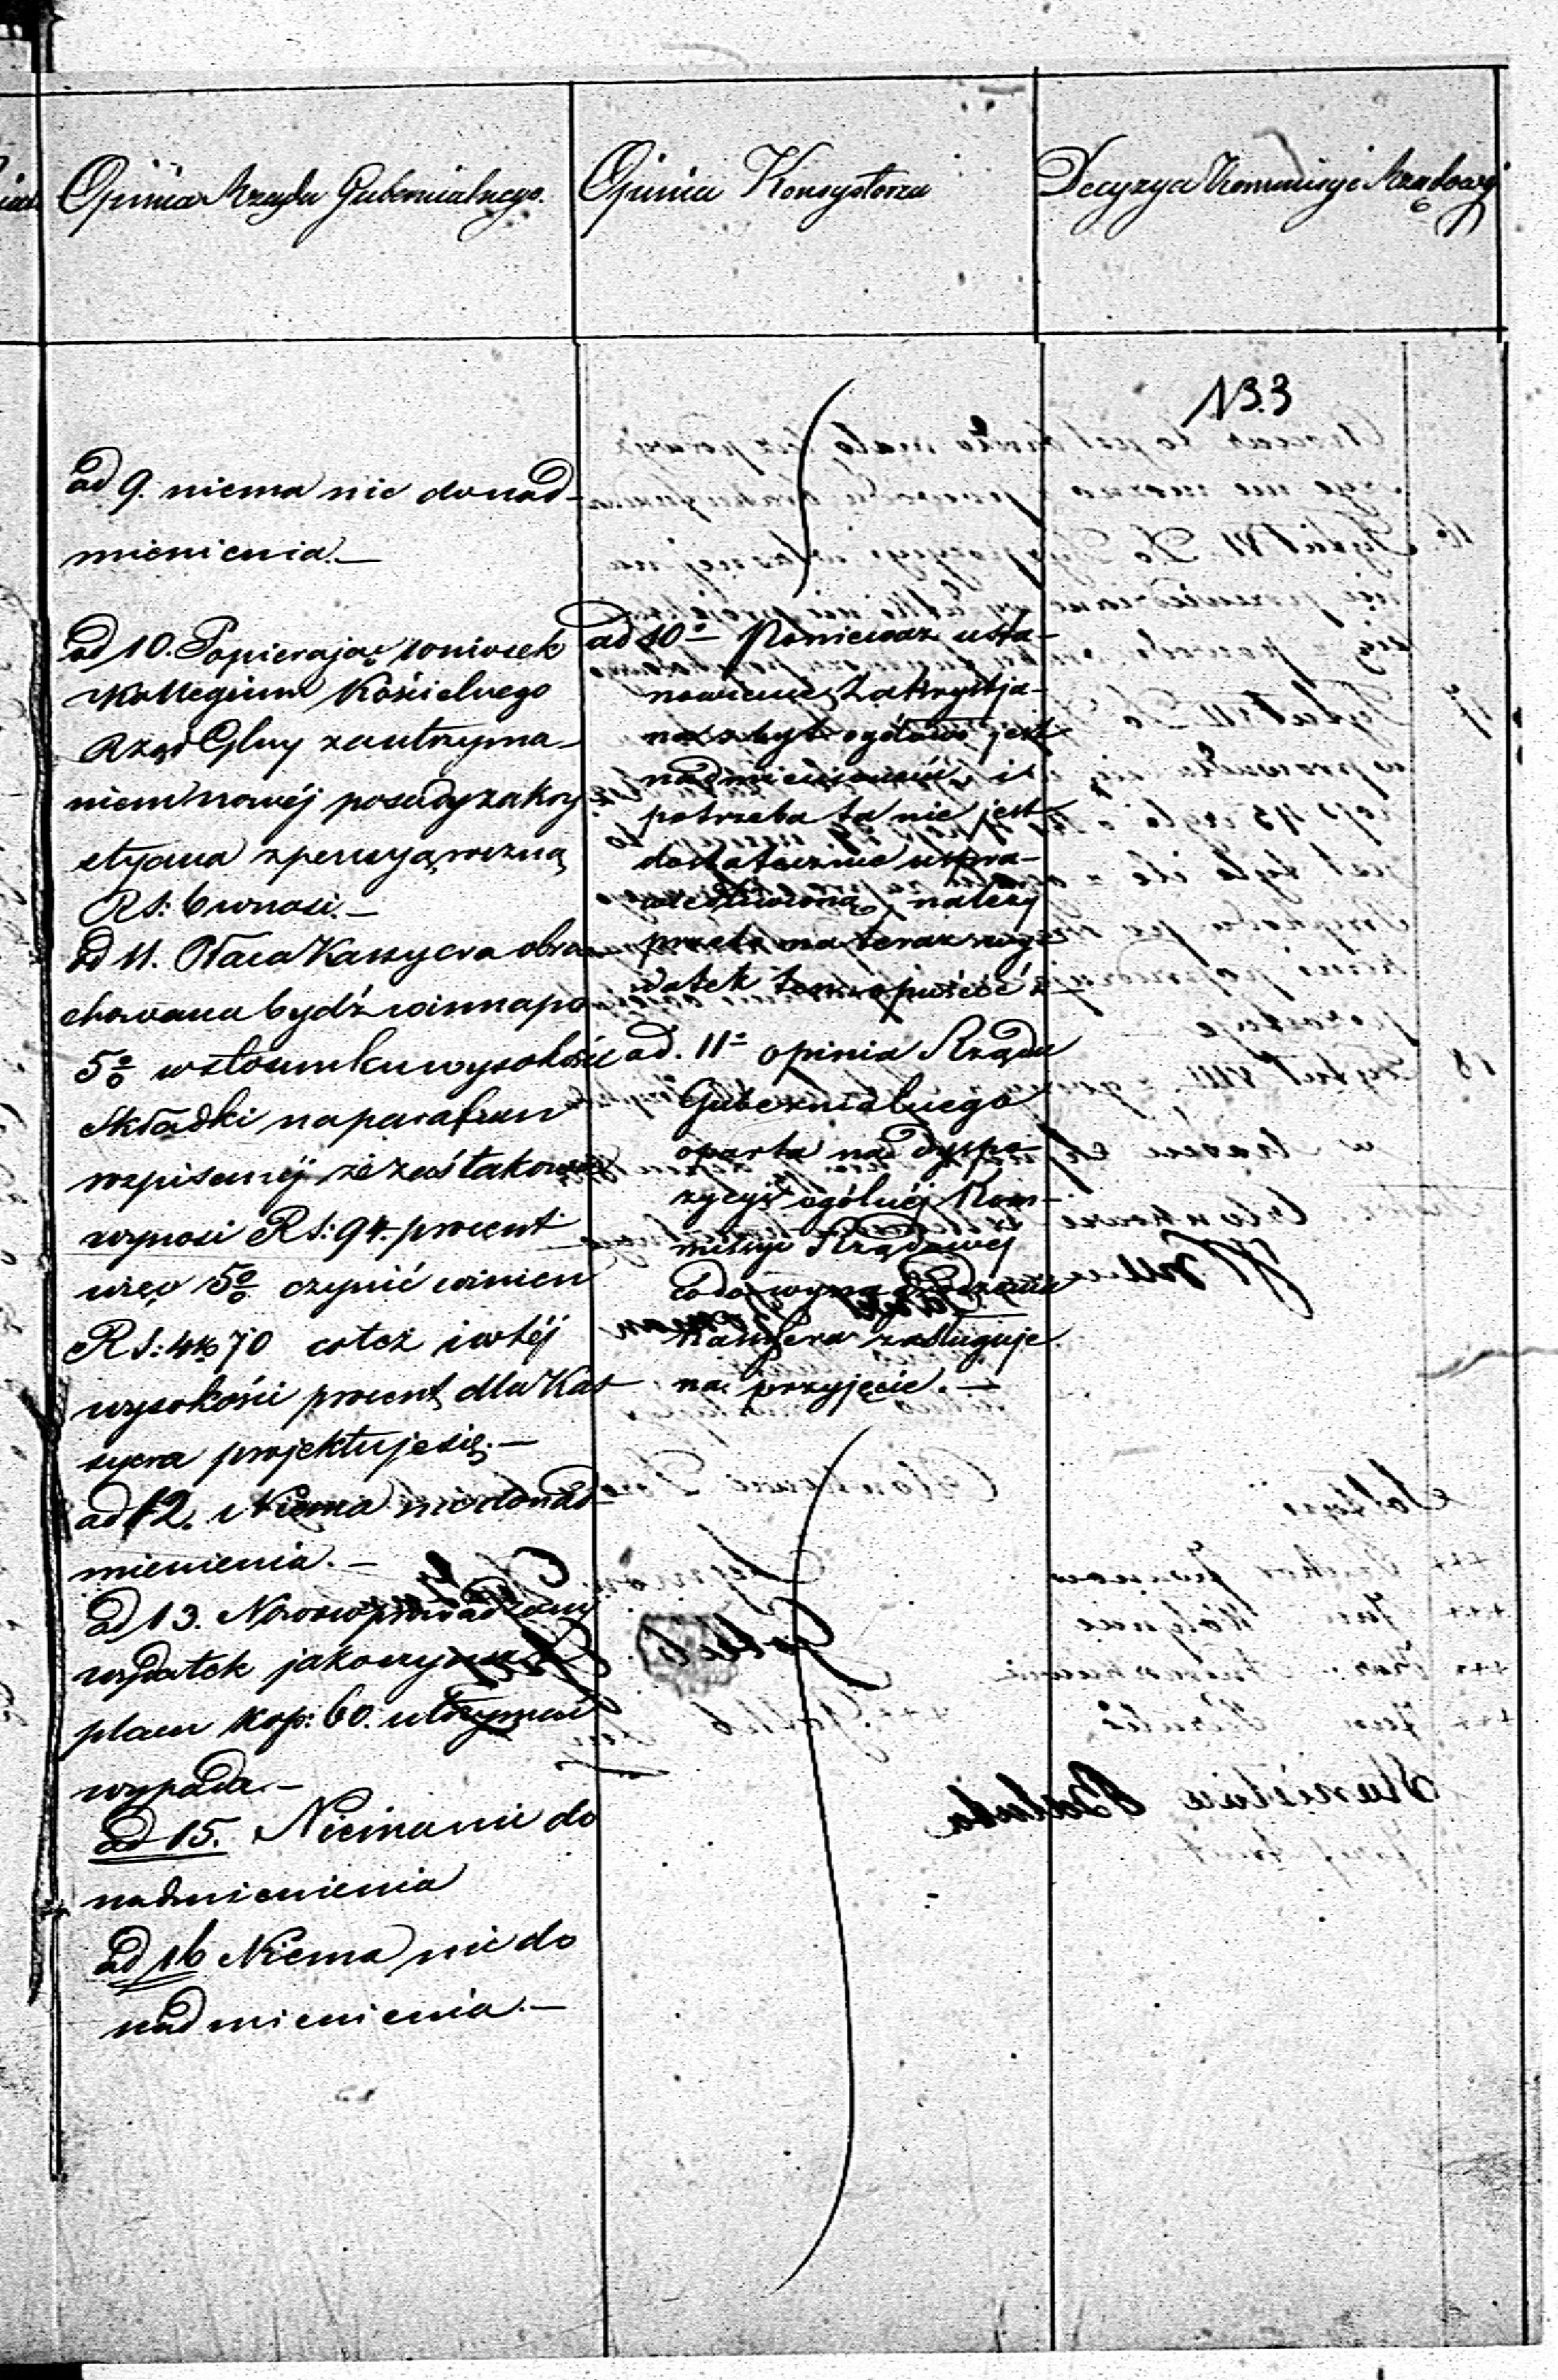 Opinia Rządu Gubernialnego.
Opinia Konsystorza
Decyzya Kommisyi Rządowej
133
ad 9. niema nic do nad-
mienienia.—
ad 10. Popierając wniosek
Kollegium Kościelnego
Rząd Glny za utrzyma-
niem nowéj posady zakry
styana z pensyą roczną
RS: 6 wnosi.—
ad 11. Płaca Kassyera obra
chowana bydź winna po
5% w stosunku wysokości
Składki na parafian
rozpisanéj że zaś takowa
wynosi RS: 94. procent
więc 5% czynić winien
RS: 4 k 70 co też i w téj
wysokości procent dla Kas
syera projektuje się.—
ad 12. Niema nic do nad
mienienia.—
ad 13. Nowowprowadzony
wydatek jako czynsz
placu kop: 60. utrzymać
wypada.—
ad 15. Niema nic do
nadmienienia
ad 16 Niema nic do
nadmienienia.—
ad 10o Ponieważ usta-
nowienie Zakrystja-
na zbyt ogółowo jest
nadmienione, i
potrzeba ta nie jest
dostatecznie uspra-
wiedliwioną, należy
przeto na teraz wy-
datek ten opuścić
ad. 11o opinia Rządu
Gubernialnego
oparta na dyspo-
zycyi ogólnéj Kom-
missyi Rządowéj
co do wynagrodzenia
Kassyera zasługuje
na przyjęcie.—